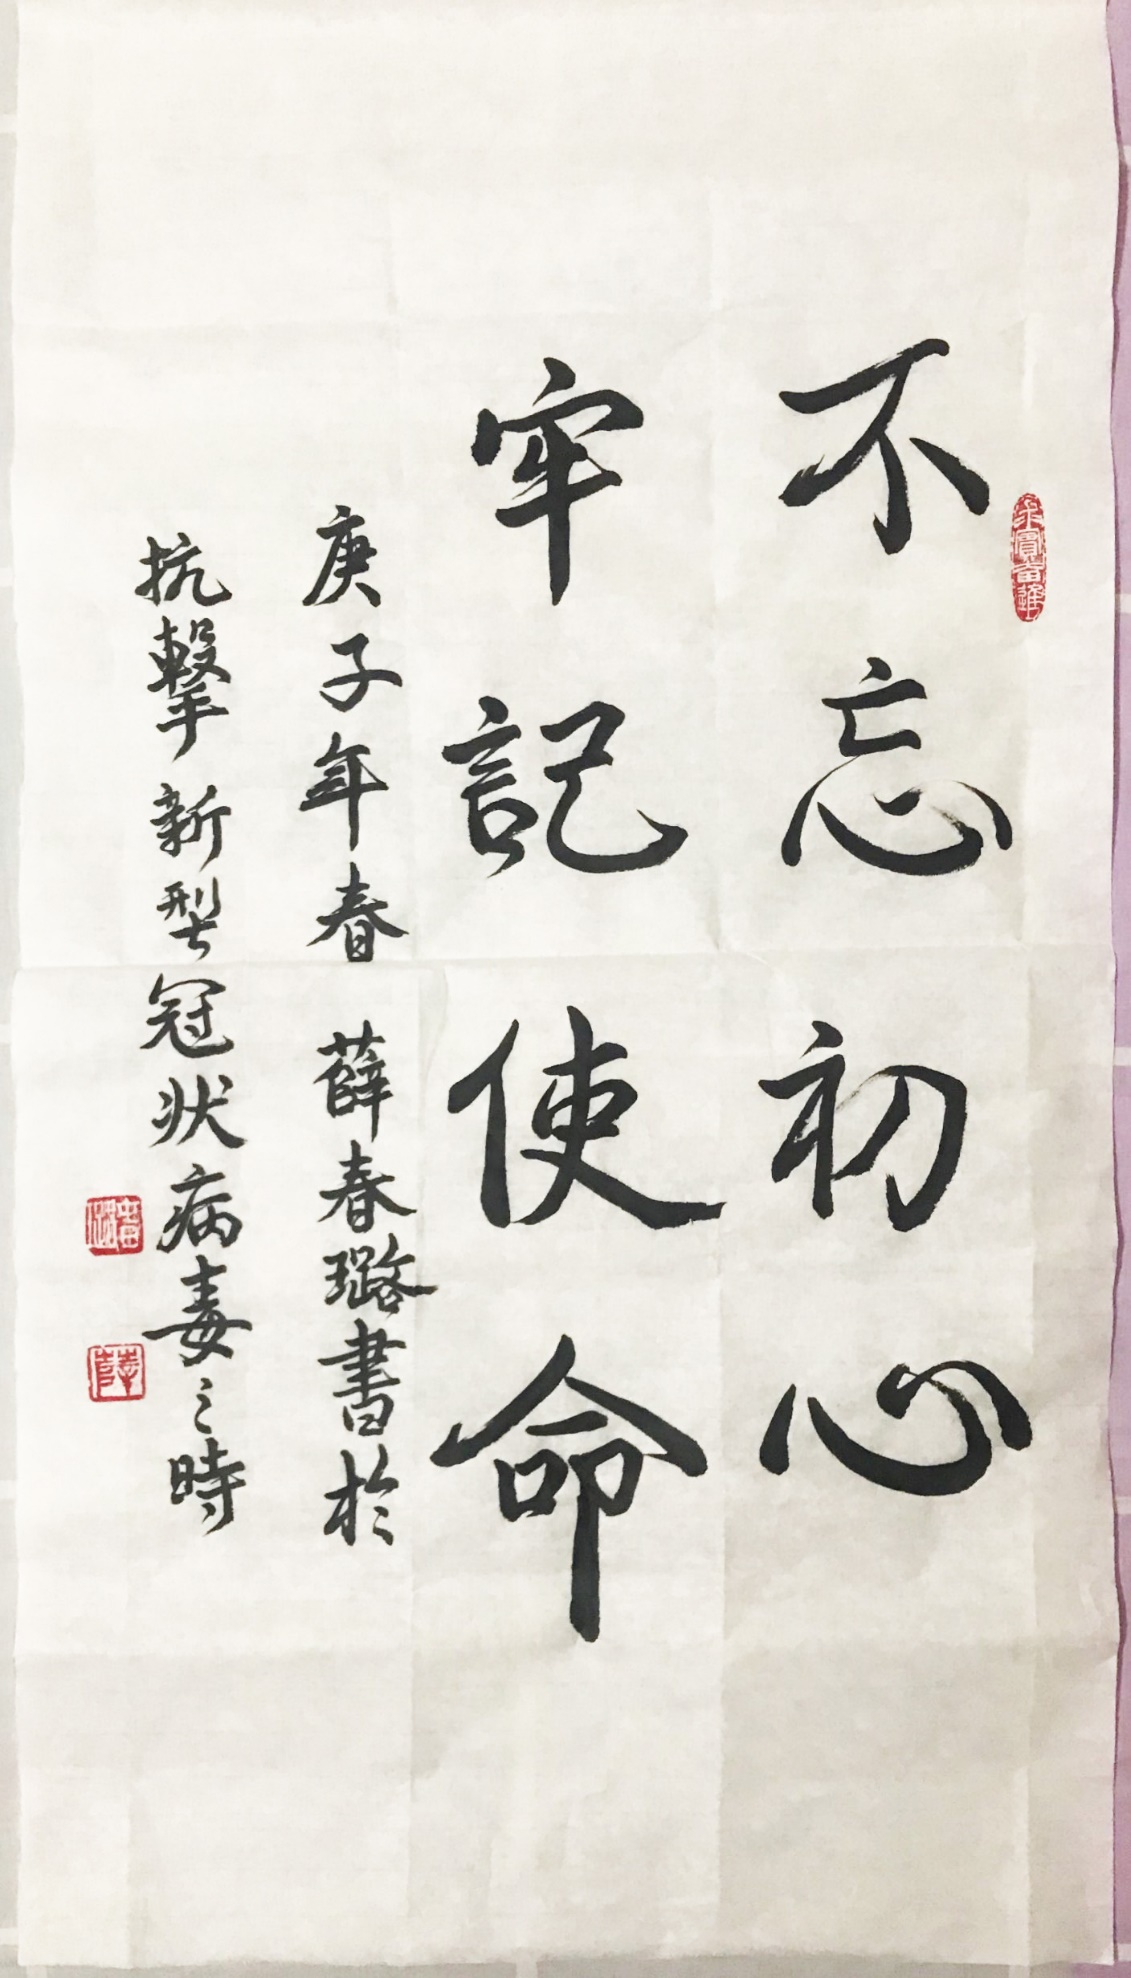 不忘初心
牢記使命
庚子年春 薛春璐書於
抗擊新型冠状病毒之時